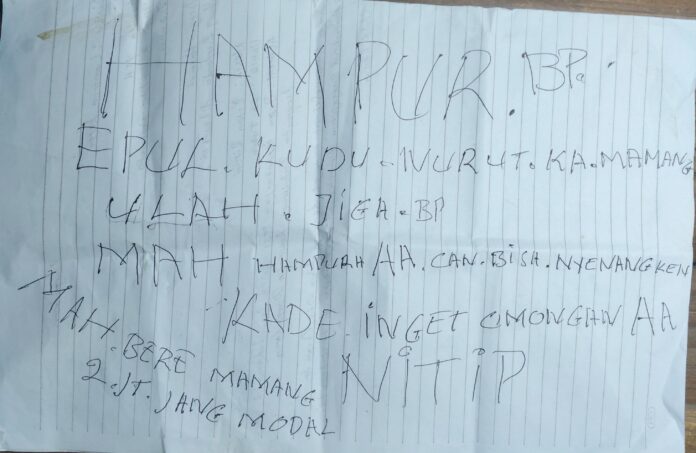 HAMPUR. BP.
EPUL. KUDU. NURUT. KA. MAMANG
ULAH. JIGA. BP
MAH HAMPURA AA. CAN. BISA. NYENANGKEN
KADE. INGET OMONGAN AA
MAH. BERE MAMANG NITIP
2. JT. JANG MODAL